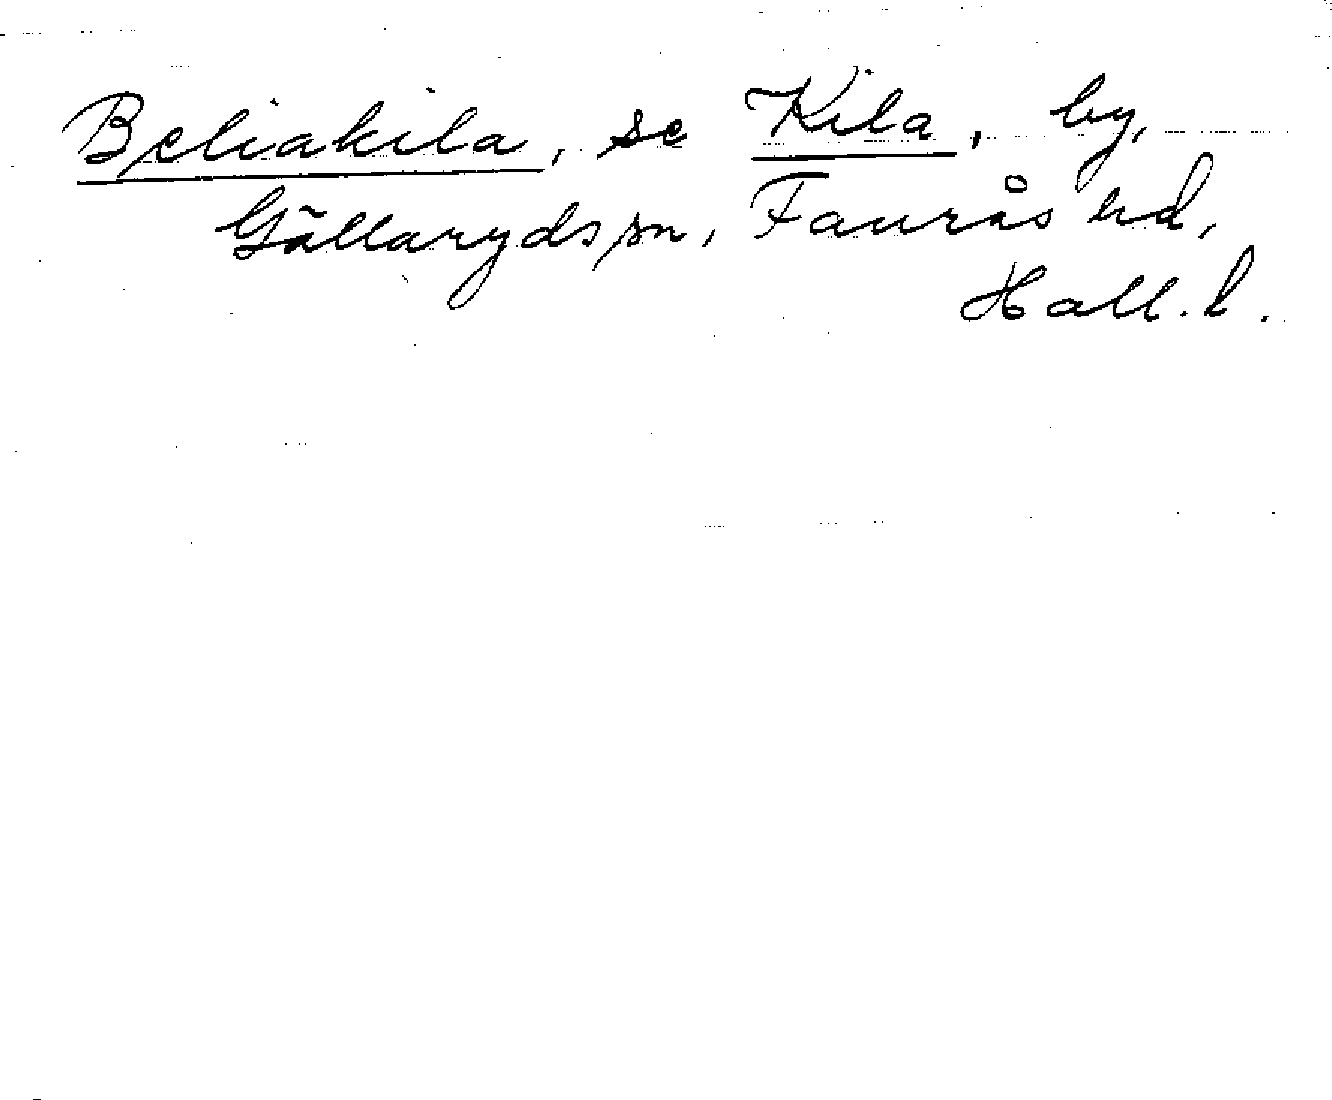 Beliakila, se Kila, by,
Gällaryds sn, Faurås hd,
Hall. l.